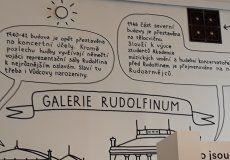 1940-41 budova je opět přestavěna
na koncertní účely. Kromě
poslechu hudby využívají němečtí
vojáci reprezentační sály Rudolfina
k nejrůznějším oslavám. Slaví tu
třeba i Vůdcovy narozeniny.
1946 část severní
budovy je přestavěna
na tělocvičnu.
Slouží k výuce
studentů Akademie
múzických umění a hudební konzervatoře.
Před Rudolfinem je přejmenováno na
Rudoarmějců.
GALERIE RUDOLFINUM
jsou